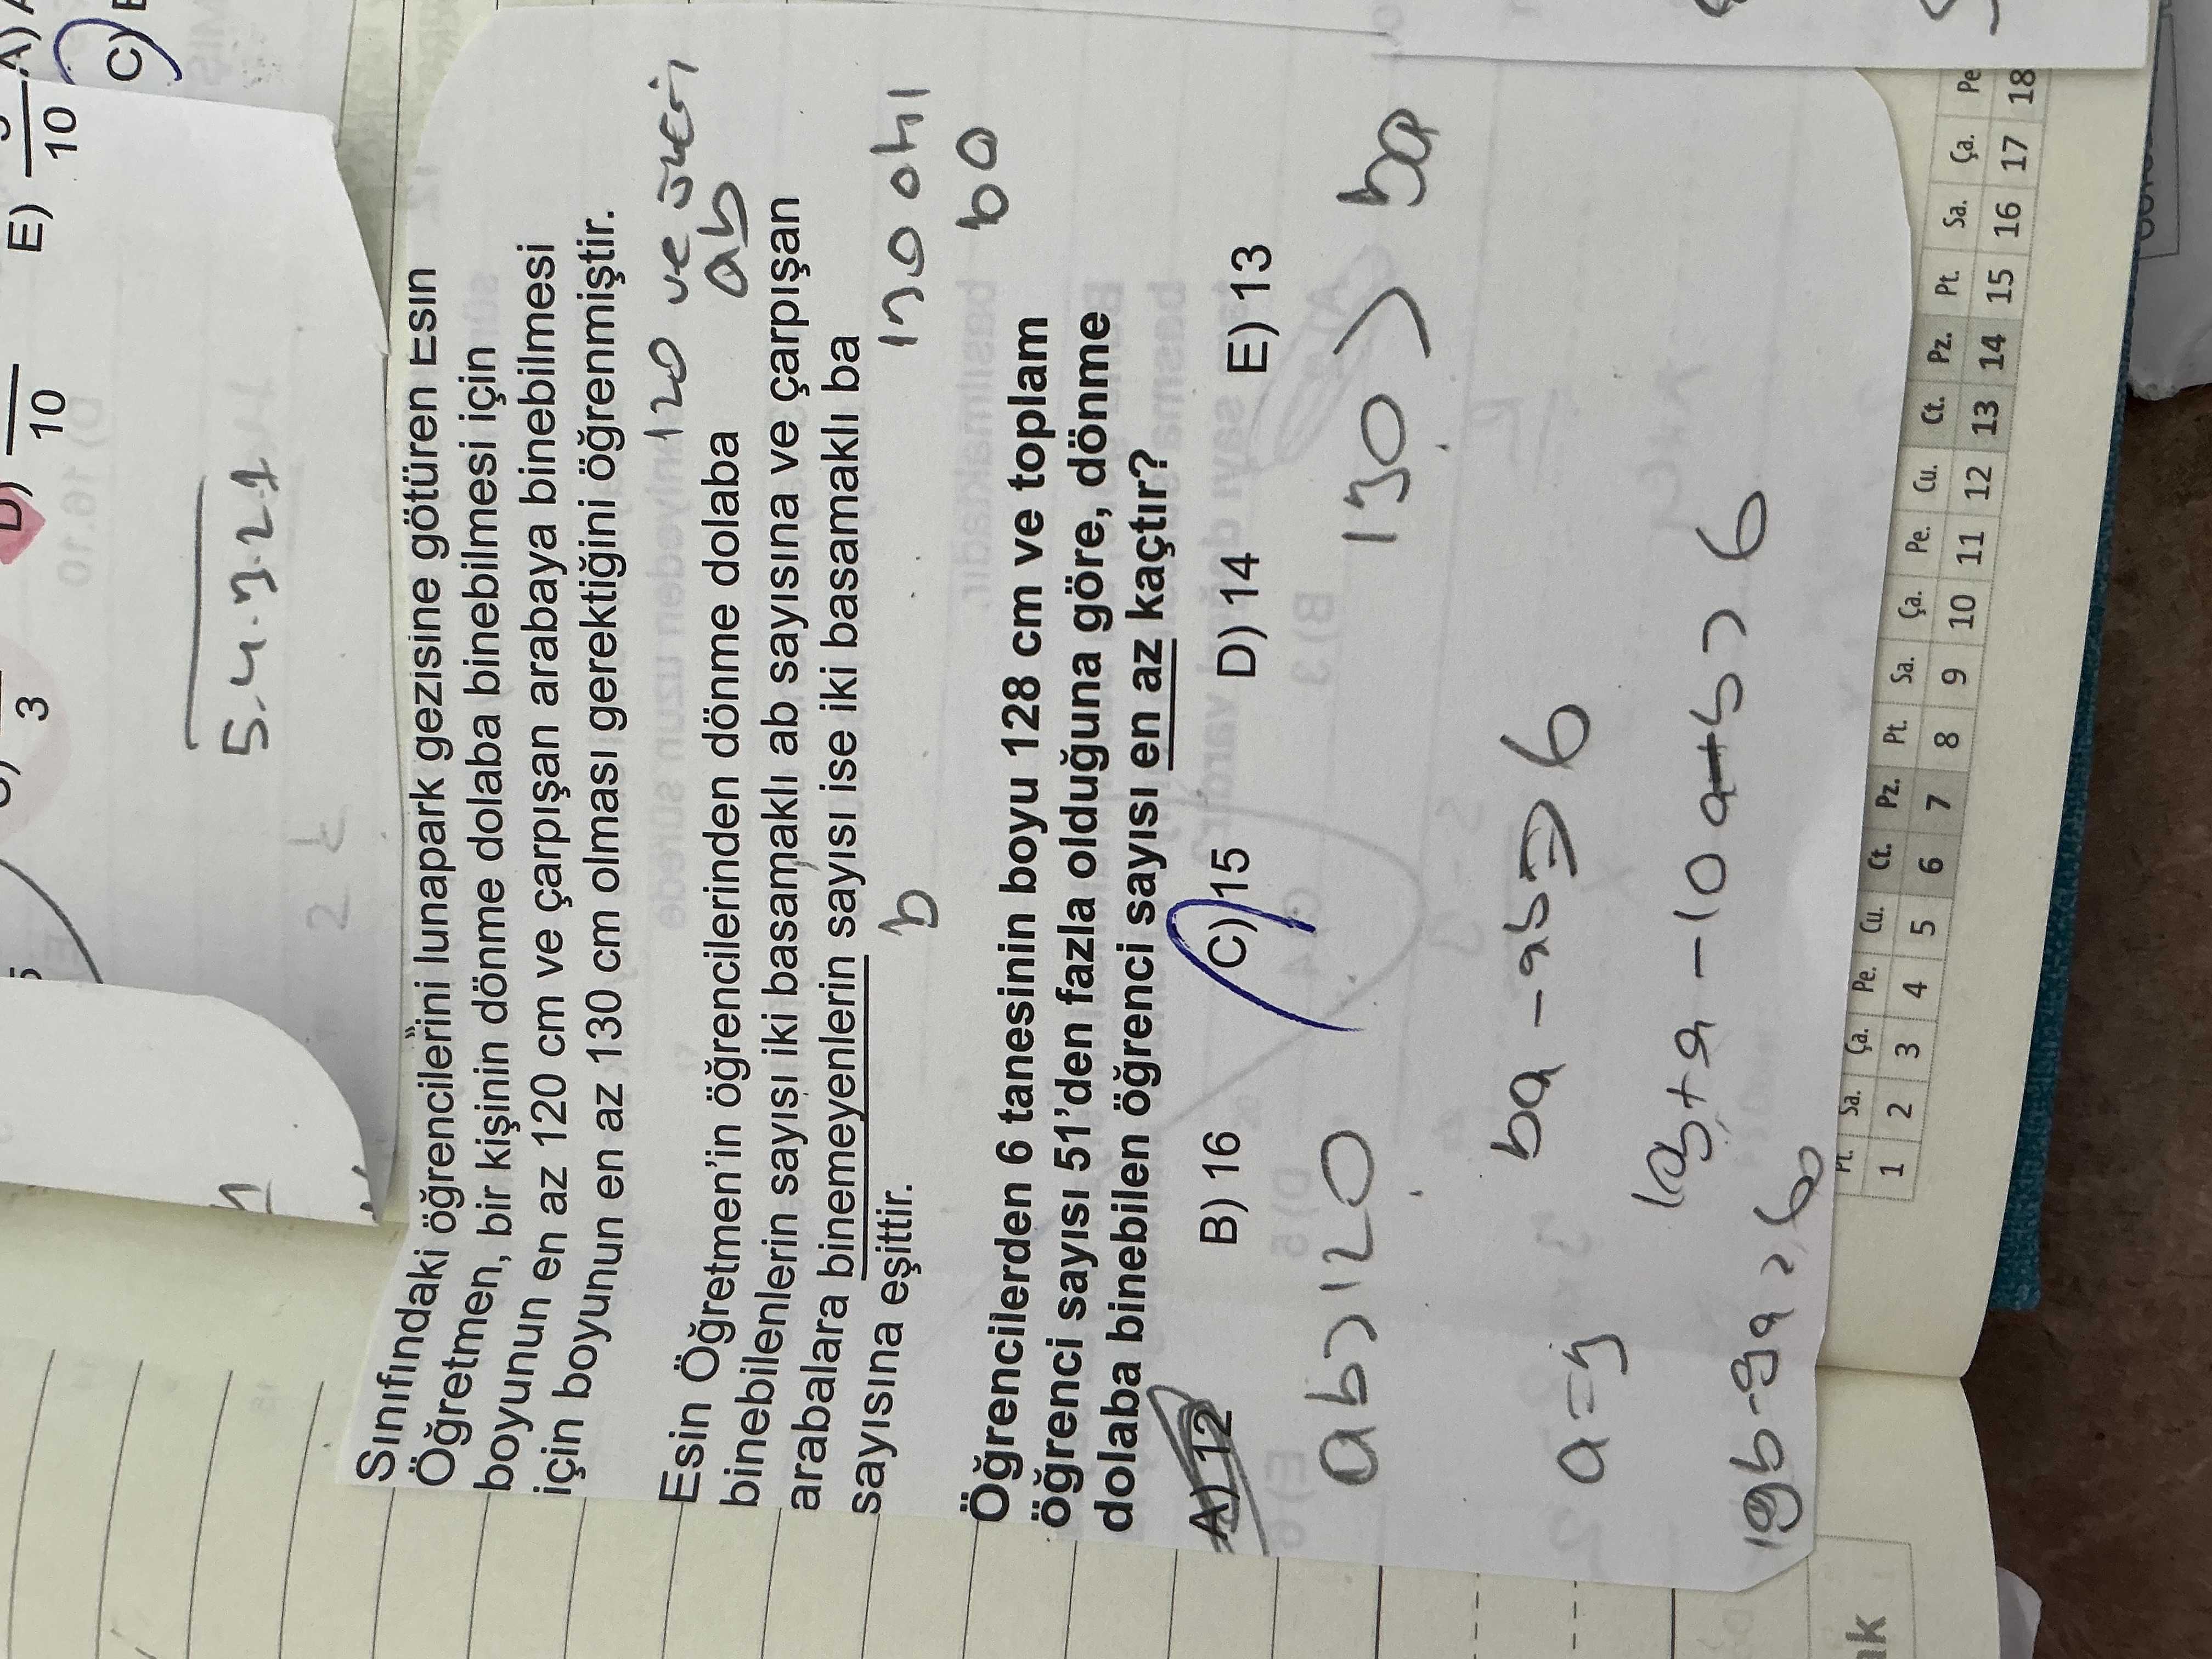 5.4.3.2.1
Sınıfındaki öğrencilerini lunapark gezisine götüren Esin
Öğretmen, bir kişinin dönme dolaba binebilmesi için
boyunun en az 120 cm ve çarpışan arabaya binebilmesi
için boyunun en az 130 cm olması gerektiğini öğrenmiştir.
120 ve üzeri
Esin Öğretmen'in öğrencilerinden dönme dolaba
ab
binebilenlerin sayısı iki basamaklı ab sayısına ve çarpışan
arabalara binemeyenlerin sayısı ise iki basamaklı ba
sayısına eşittir.
b
ba
Öğrencilerden 6 tanesinin boyu 128 cm ve toplam
öğrenci sayısı 51'den fazla olduğuna göre, dönme
dolaba binebilen öğrenci sayısı en az kaçtır?
A) 12 B) 16 C) 15 D) 14 E) 13
ab > 120
130 > ba
ba - ab = 6
a = 3
10b + a - 10a + b > 6
3
10
10
E)
C)
Pt. Sa. Ça. Pe. Cu. Ct. Pz. Pt. Sa. Ça. Pe. Cu. Ct. Pz. Pt. Sa. Ça. Pe
1 2 3 4 5 6 7 8 9 10 11 12 13 14 15 16 17 18